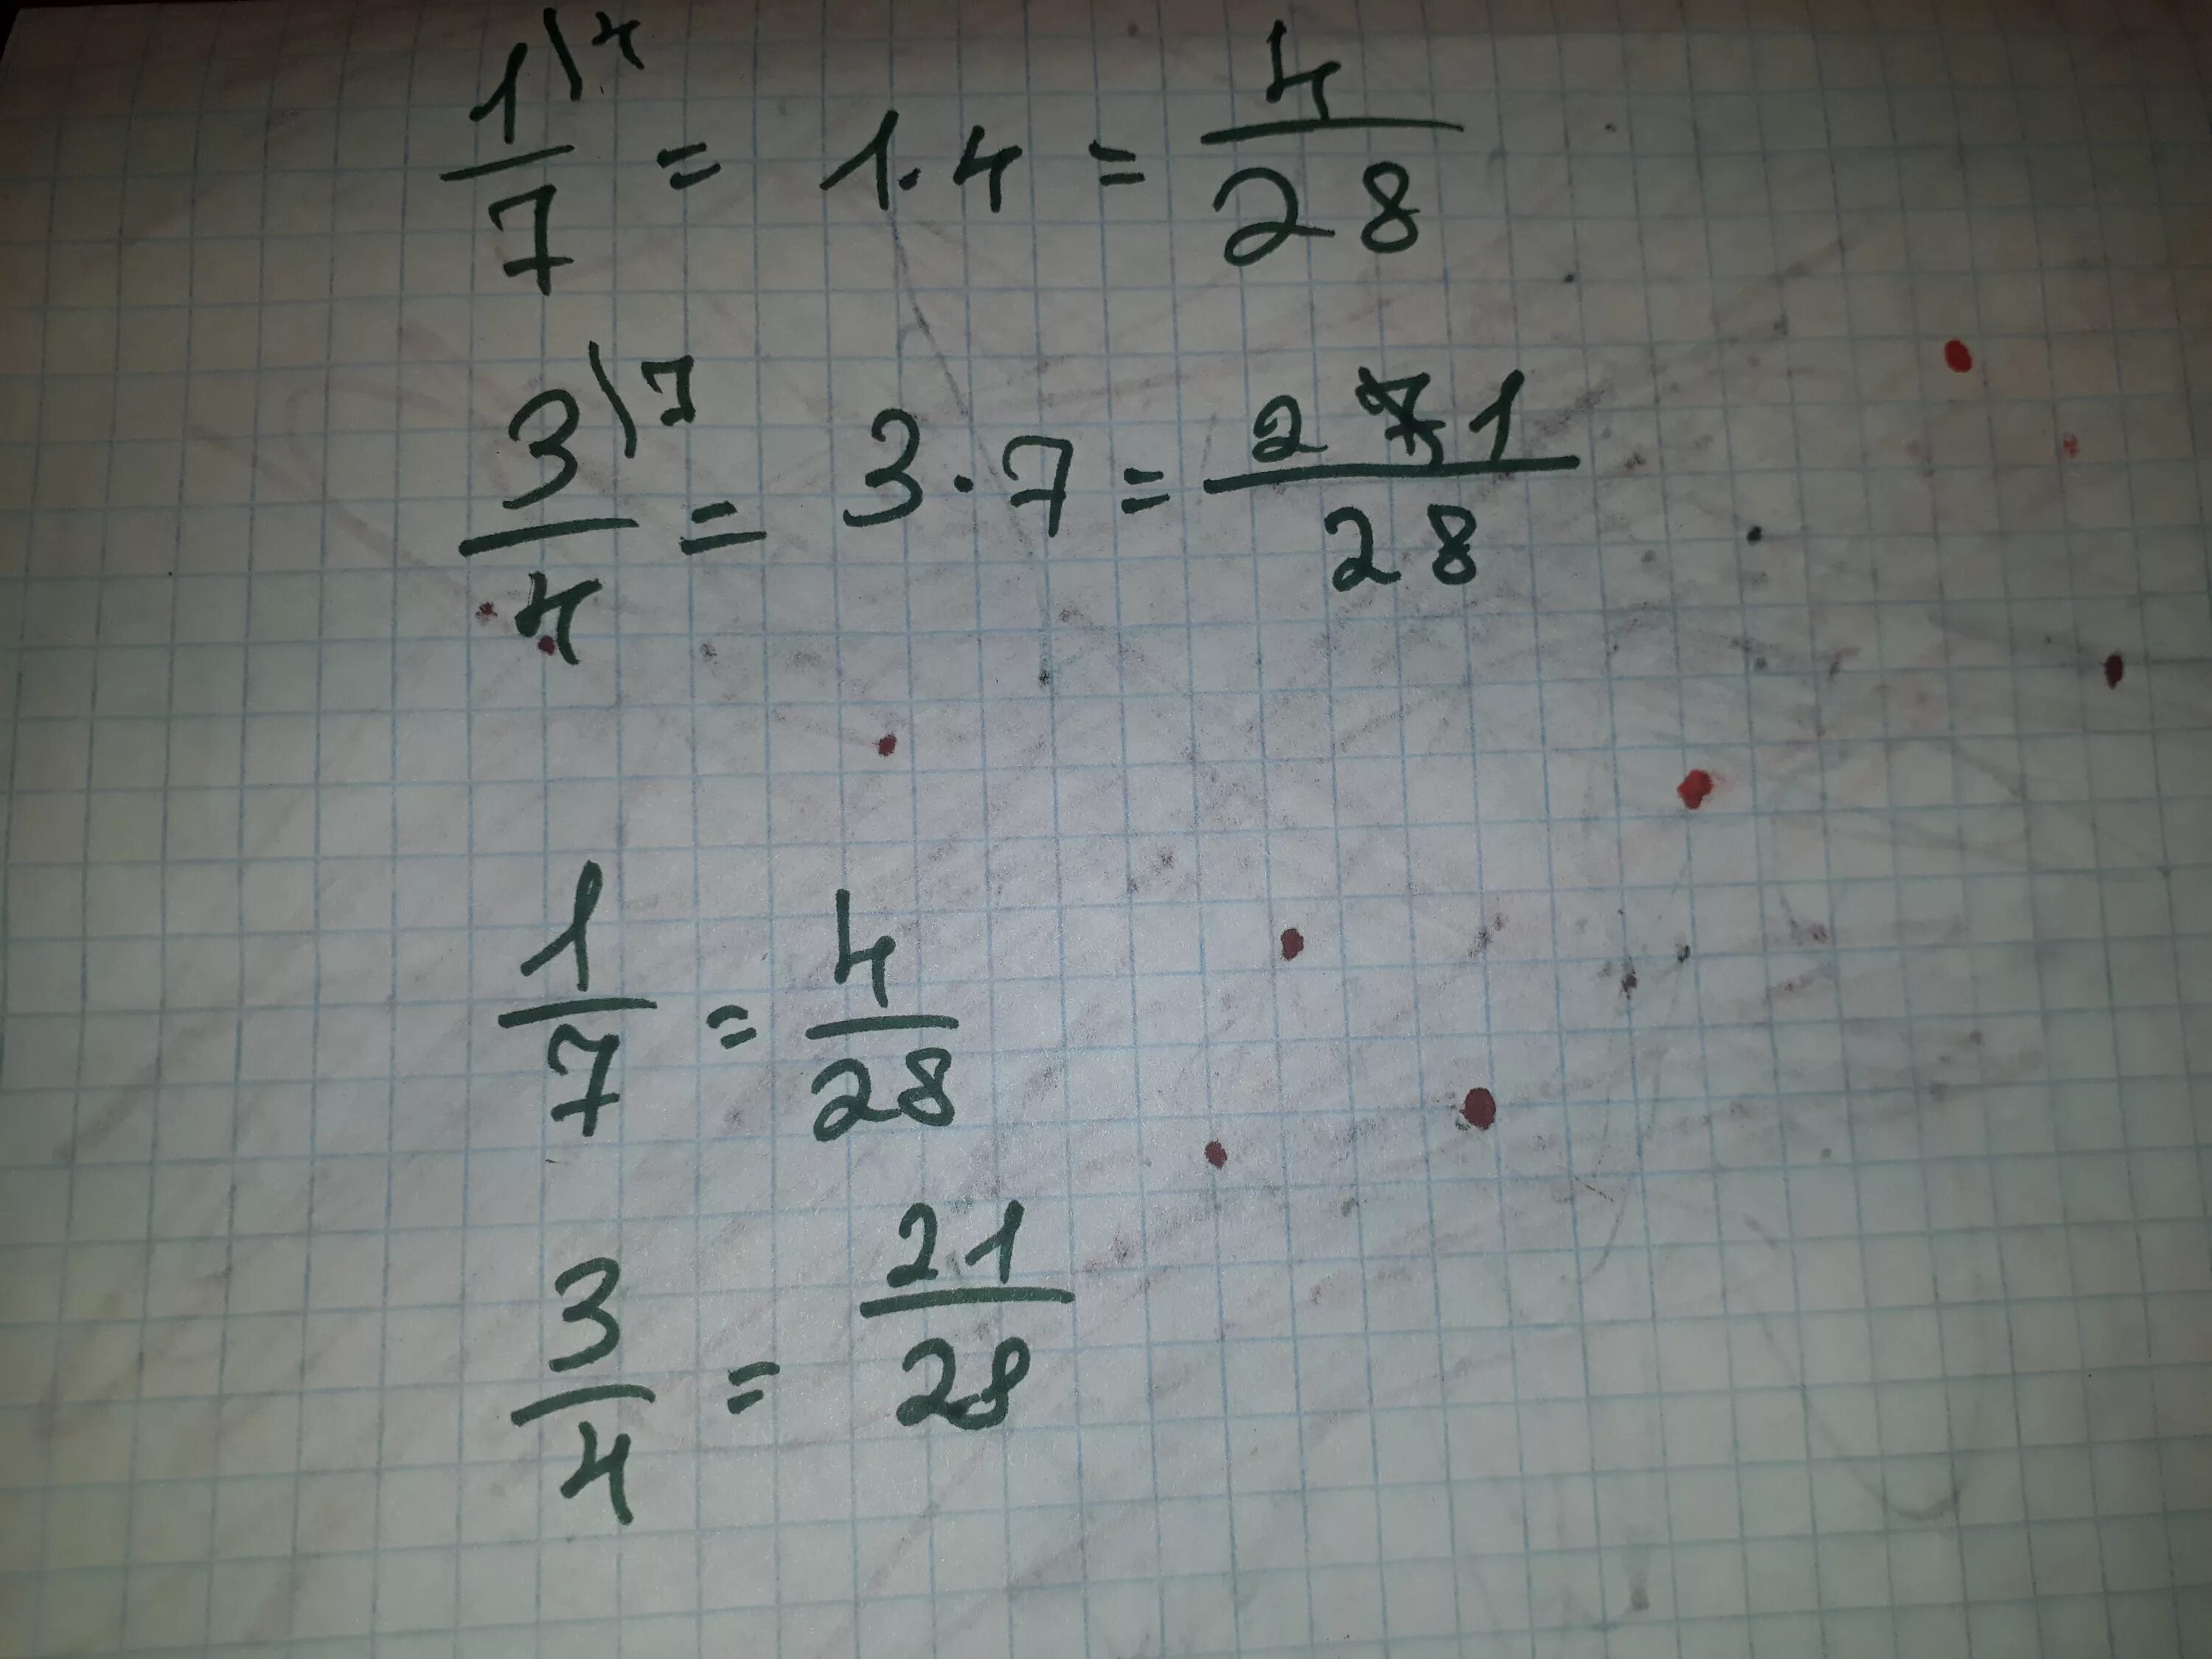 1\4/7 = 1·4 = 4/28
3\7/4 = 3·7 = 21/28
1/7 = 4/28
3/4 = 21/28